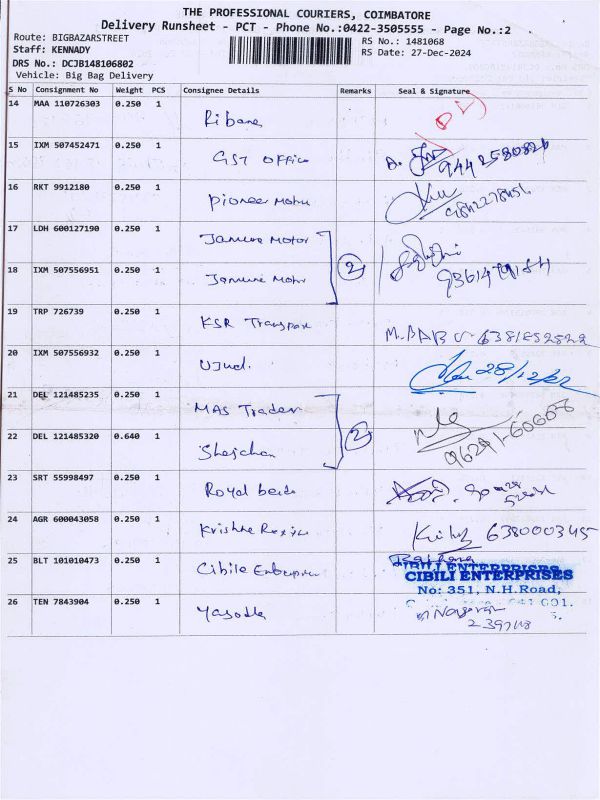 THE PROFESSIONAL COURIERS, COIMBATORE
Delivery Runsheet - PCT - Phone No.:0422-3505555 - Page No.:2
Route: BIGBAZARSTREET RS No.: 1481068
Staff: KENNADY RS Date: 27-Dec-2024
DRS No.: DCJB148106802
Vehicle: Big Bag Delivery
S No Consignment No Weight PCS Consignee Details Remarks Seal & Signature
14 MAA 110726303 0.250 1 Ribana
15 IXM 507452471 0.250 1 GST Office
16 RKT 9912180 0.250 1 Pioneer Motor
17 LDH 600127190 0.250 1 Motor
18 IXM 507556951 0.250 1 2
19 TRP 726739 0.250 1 KSR Transport M.BABU
20 IXM 507556932 0.250 1 28/12/24
21 DEL 121485235 0.250 1 MAS Trader
22 DEL 121485320 0.640 1 2 96291-60668
23 SRT 55998497 0.250 1 Royal
24 AGR 600043058 0.250 1 Krishna 6380003345
25 BLT 101010473 0.250 1 Cibile Enterprises
CIBILI ENTERPRISES
No: 351, N.H.Road,
26 TEN 7843904 0.250 1 Yasodha